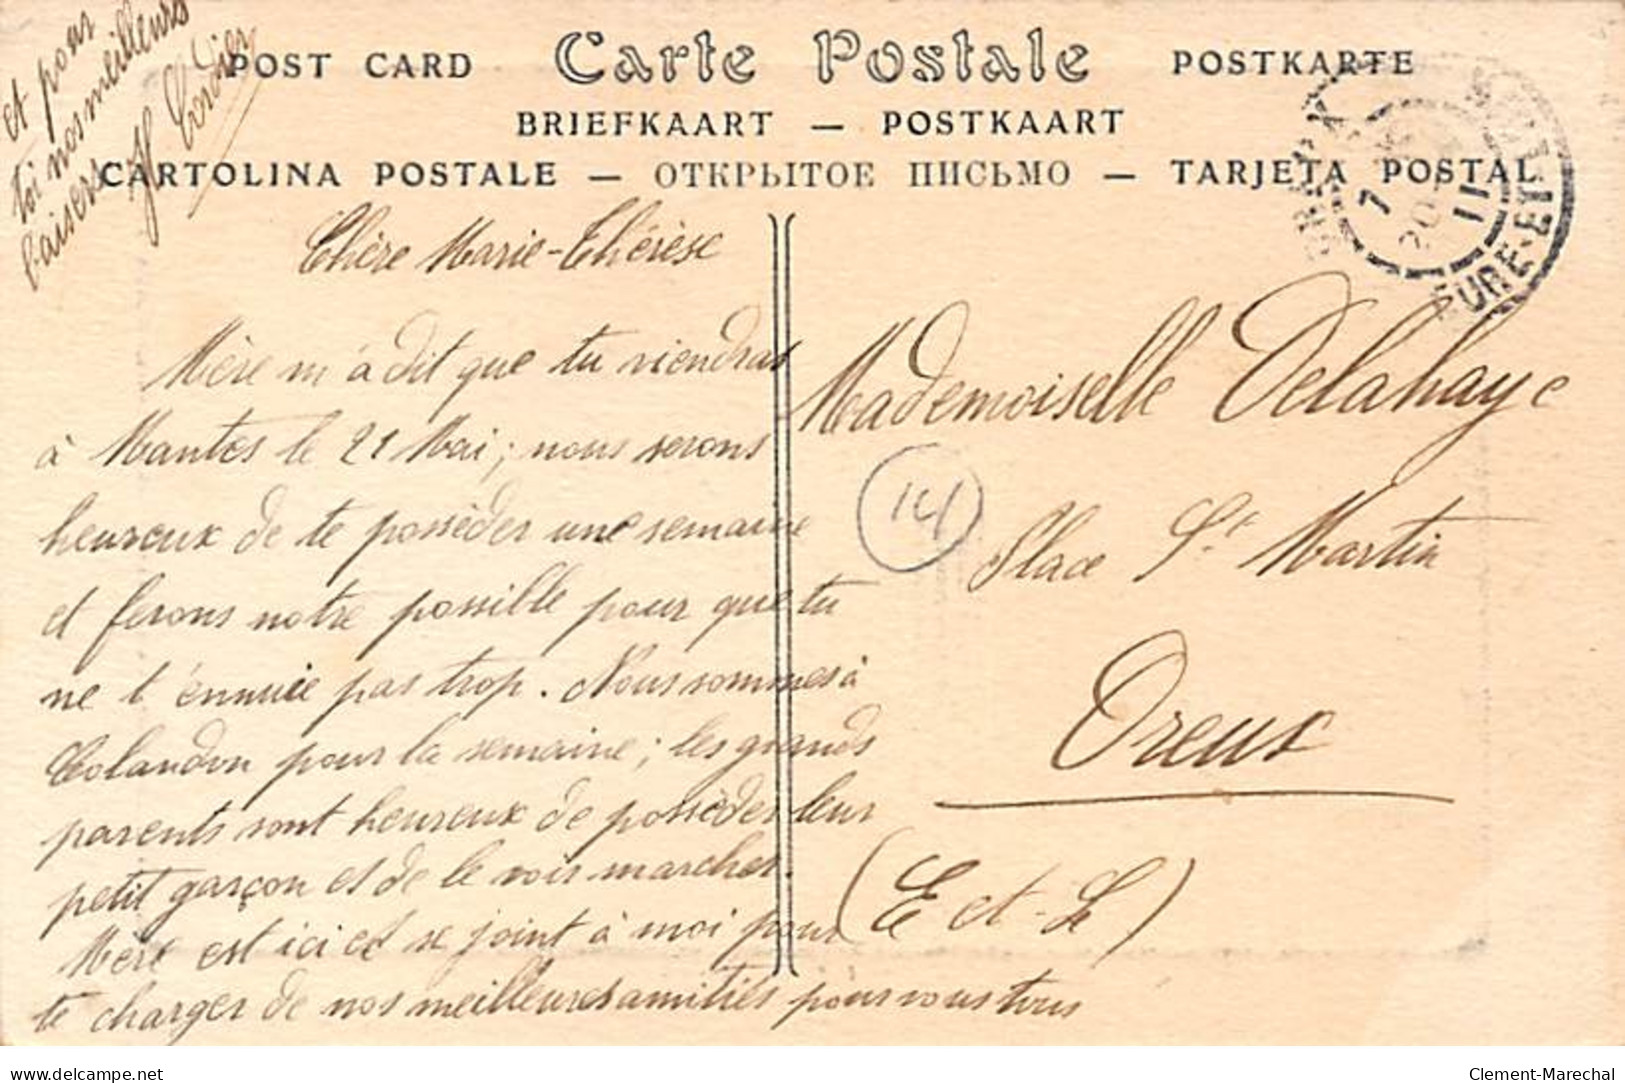 et pour
toi nos meilleurs
baisers H Cordier
POST CARD Carte Postale POSTKARTE
BRIEFKAART — POSTKAART
CARTOLINA POSTALE — ОТКРЫТОЕ ПИСЬМО — TARJETA POSTAL
Chère Marie-Thérèse
Mère m'a dit que tu viendras
à Mantes le 21 Mai; nous serons
heureux de te posséder une semaine
et ferons notre possible pour que tu
ne t'ennuie pas trop. Nous sommes à
Colandon pour la semaine; les grands
parents sont heureux de posséder leur
petit garçon et de le voir marcher.
Mère est ici et se joint à moi pour
te charger de nos meilleures amitiés pour vous tous
7
20
11
EURE-ET
Mademoiselle Delahaye
14
Place St Martin
Dreux
(E et-L)
www.delcampe.net
Clement-Marechal